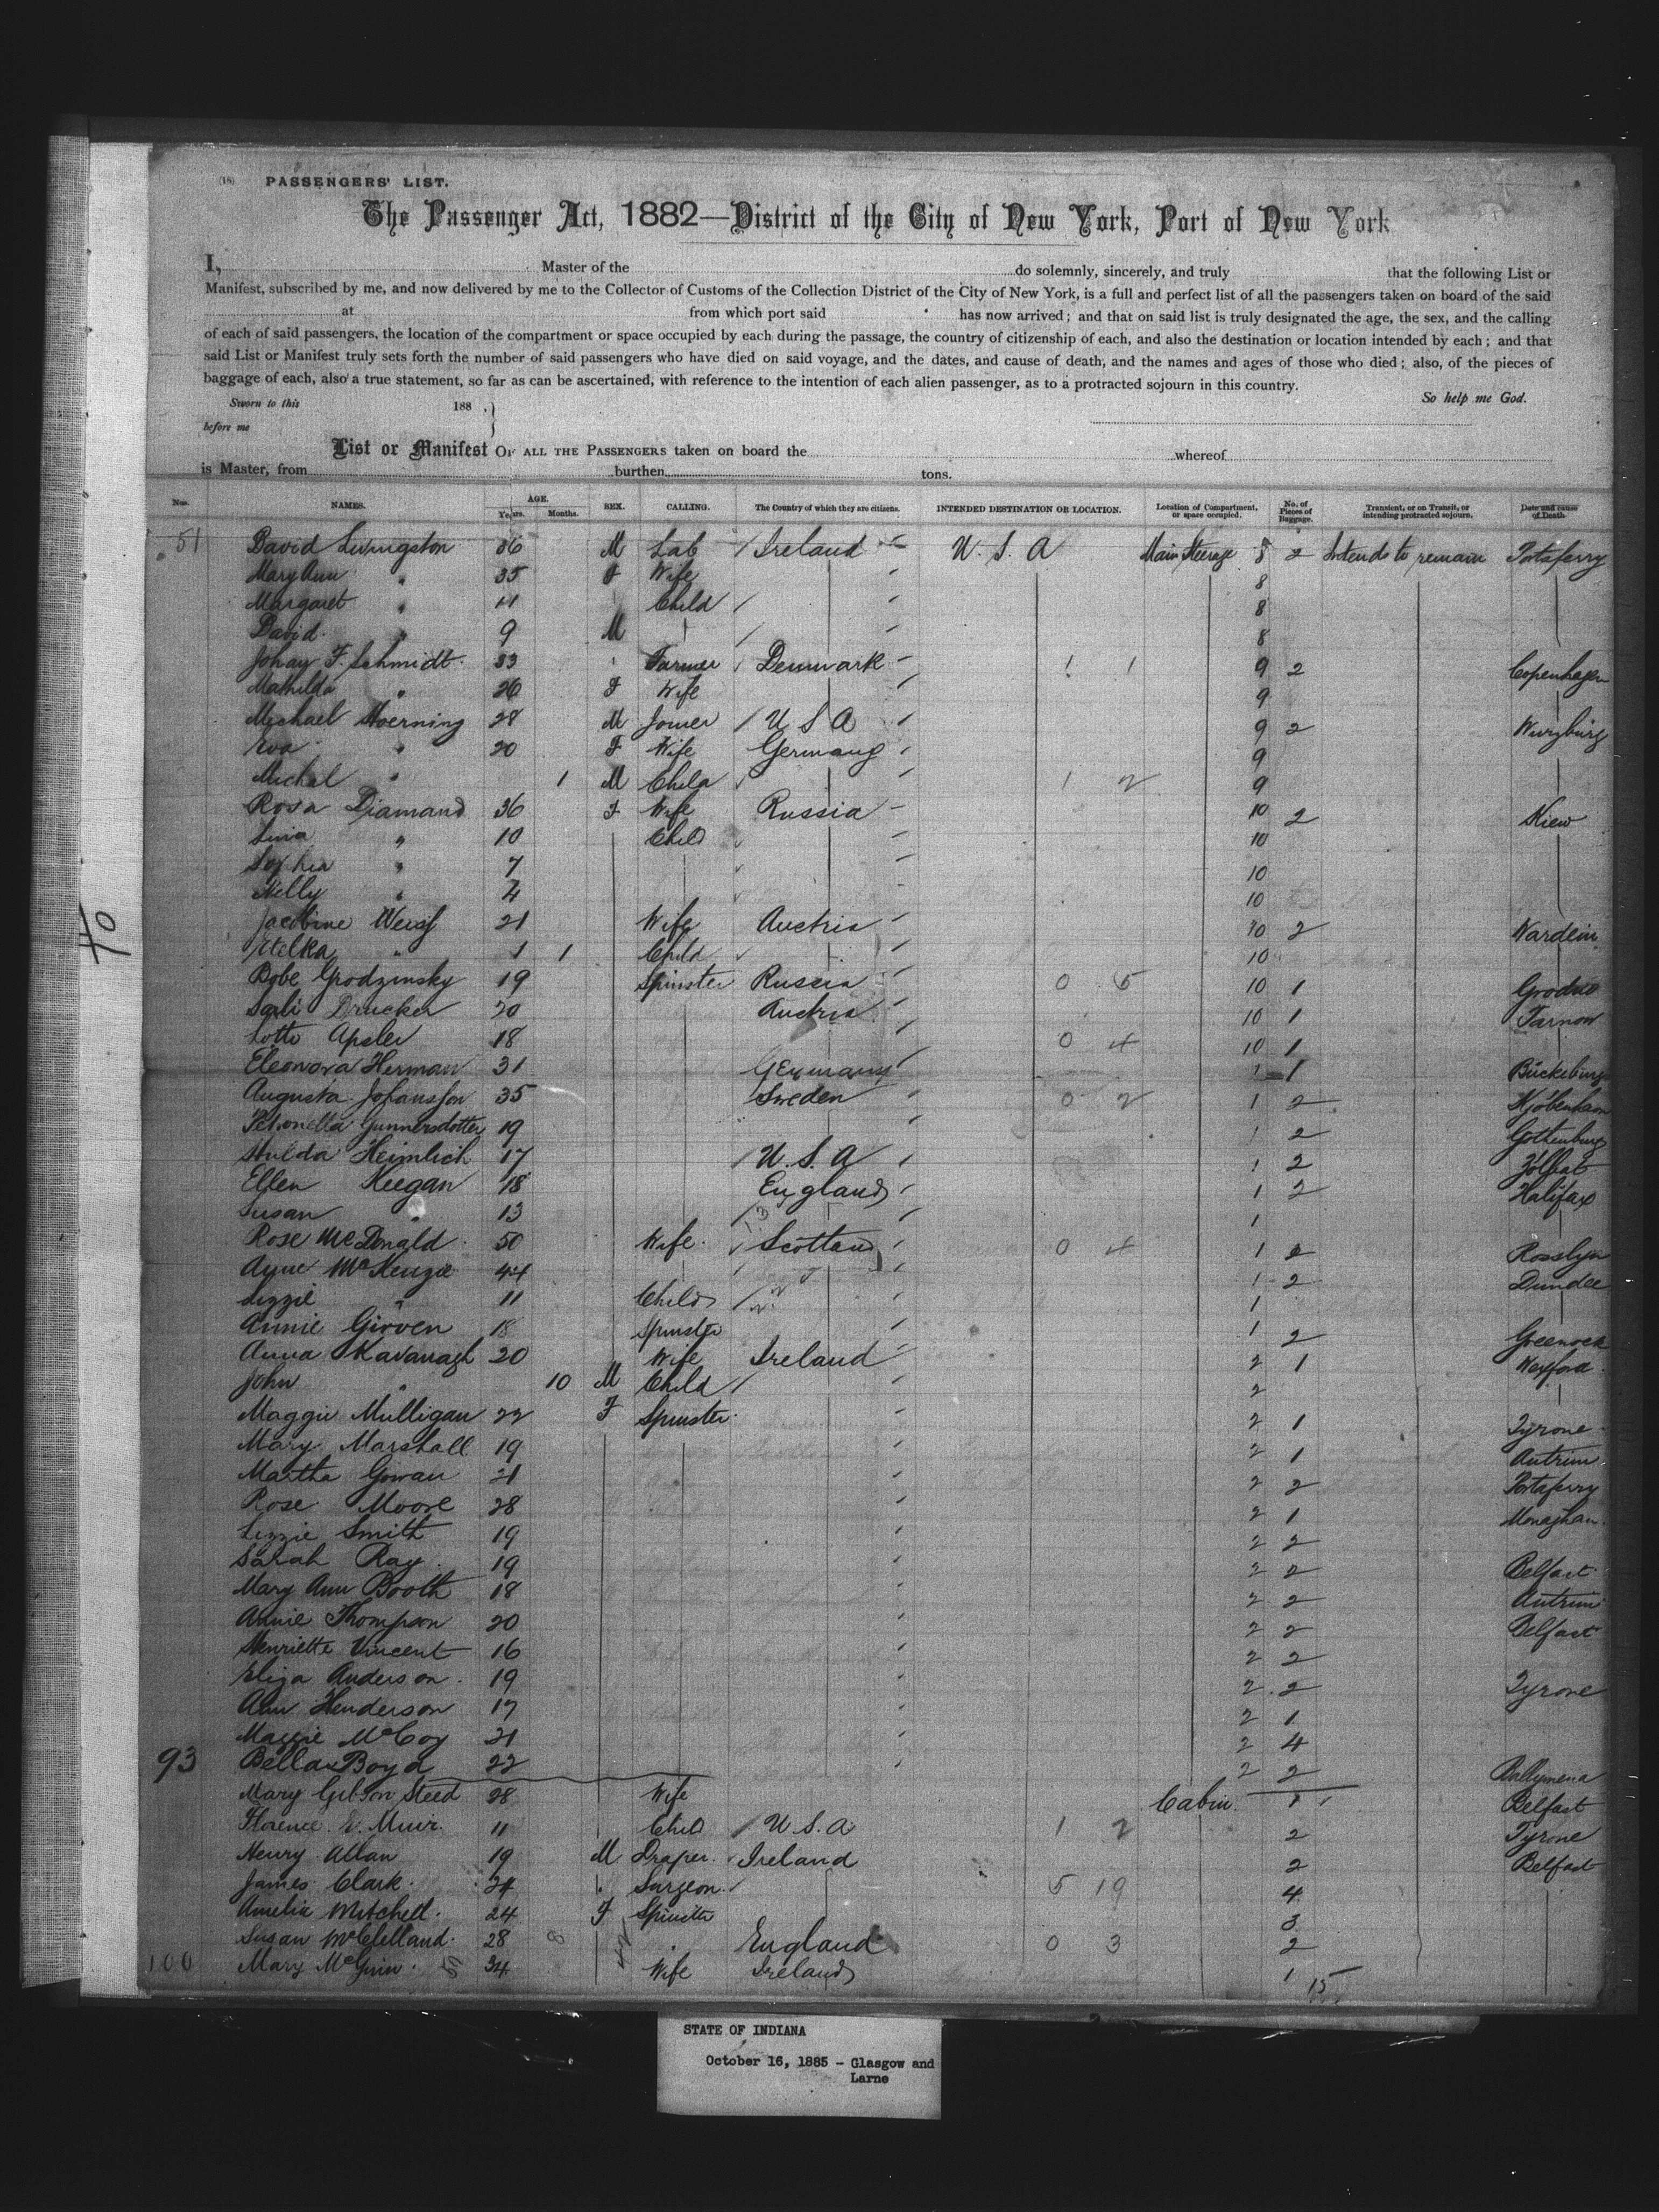 (18) PASSENGERS' LIST.
The Passenger Act, 1882—District of the City of New York, Port of New York
I, Master of the do solemnly, sincerely, and truly that the following List or
Manifest, subscribed by me, and now delivered by me to the Collector of Customs of the Collection District of the City of New York, is a full and perfect list of all the passengers taken on board of the said
at from which port said has now arrived; and that on said list is truly designated the age, the sex, and the calling
of each of said passengers, the location of the compartment or space occupied by each during the passage, the country of citizenship of each, and also the destination or location intended by each; and that
said List or Manifest truly sets forth the number of said passengers who have died on said voyage, and the dates, and cause of death, and the names and ages of those who died; also, of the pieces of
baggage of each, also a true statement, so far as can be ascertained, with reference to the intention of each alien passenger, as to a protracted sojourn in this country.
Sworn to this 188 . } So help me God.
before me
List or Manifest OF ALL THE PASSENGERS taken on board the whereof
is Master, from burthen tons.
Nos. NAMES. AGE. Years. Months. SEX. CALLING. The Country of which they are citizens. INTENDED DESTINATION OR LOCATION. Location of Compartment, or space occupied. No. of Pieces of Baggage. Transient, or on Transit, or intending protracted sojourn. Date and cause of Death.
51 David Livingston 36 M Lab Ireland U. S. A Main Steerage 8 2 Intends to remain Portaferry
Mary Ann " 35 F Wife 8
Margaret " 11 Child 8
David " 9 M 8
Johan F. Schmidt 33 Farmer Denmark 1 1 9 2 Copenhagen
Mathilda " 26 F Wife 9
Michael Hoerning 28 M Joiner U S A 9 2 Wurzburg
Eva " 20 F Wife Germany 9
Michal " 1 M Child 1 2 9
Rosa Diamand 36 F Wife Russia 10 2 Kiew
Lina " 10 Child 10
Sophia " 7 10
Nelly " 4 10
Jacobine Weiss 21 Wife Austria 10 2 Wardein
Etelka " 1 1 Child 10
Bobe Grodzinsky 19 Spinster Russia 0 5 10 1 Grodno
Sali Drucker 20 Austria 10 1 Tarnow
Lotte Apsler 18 0 4 10 1
Eleonora Herman 31 Germany 1 1 Bückeburg
Augusta Johansson 35 Sweden 0 2 1 2 Kjöbenhavn
Petronella Gunnersdotter 19 1 2 Gothenburg
Hulda Heimlich 17 U. S. A 1 2
Ellen Keegan 18 England 1 2 Halifax
Susan " 13 1
Rose McDonald 50 Wife Scotland 0 4 1 2 Rosslyn
Anne McKenzie 44 1 2 Dundee
Lizzie " 11 Child 1
Annie Girven 18 Spinster 1 2 Greenock
Anna Kavanagh 20 Wife Ireland 2 1 Wexford
John " 10 M Child 2
Maggie Mulligan 22 F Spinster 2 1 Tyrone
Mary Marshall 19 2 1 Antrim
Martha Gowan 21 2 2 Portaferry
Rose Moore 28 2 1 Monaghan
Lizzie Smith 19 2 2
Sarah Ray 19 2 2 Belfast
Mary Ann Booth 18 2 2 Antrim
Annie Thompson 20 2 2 Belfast
Henriette Vincent 16 2 2
Eliza Anderson 19 2 2 Tyrone
Ann Henderson 17 2 1
Maggie McCoy 21 2 4
93 Bella Boyd 22 2 2 Ballymena
Mary Gibson Steed 28 Wife Cabin 1 Belfast
Florence E. Muir 11 Child U. S. A 1 2 2 Tyrone
Henry Allan 19 M Draper Ireland 2 Belfast
James Clark 24 Surgeon 5 19 4
Amelia Mitchell 24 F Spinster 3
Susan McClelland 28 8 England 0 3 2
100 Mary McGuin 34 Wife Ireland 1 15
40
STATE OF INDIANA
October 16, 1885 - Glasgow and
Larne